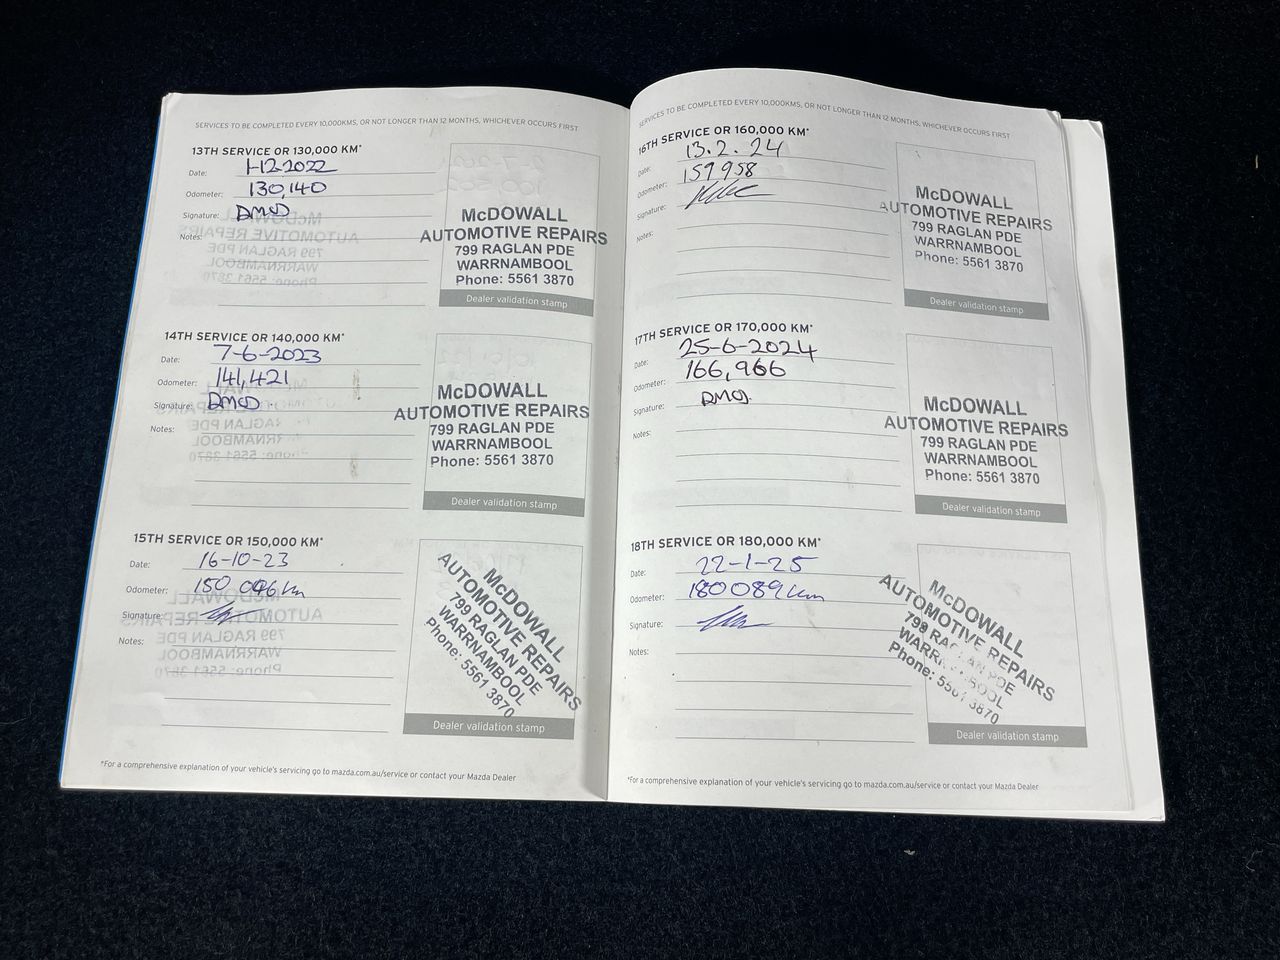 SERVICES TO BE COMPLETED EVERY 10,000KMS, OR NOT LONGER THAN 12 MONTHS, WHICHEVER OCCURS FIRST
13TH SERVICE OR 130,000 KM*
Date: 1-12-2022
Odometer: 130,140
Signature:
Notes:
McDOWALL
AUTOMOTIVE REPAIRS
799 RAGLAN PDE
WARRNAMBOOL
Phone: 5561 3870
Dealer validation stamp
14TH SERVICE OR 140,000 KM*
Date: 7-6-2023
Odometer: 141,421
Signature:
Notes:
McDOWALL
AUTOMOTIVE REPAIRS
799 RAGLAN PDE
WARRNAMBOOL
Phone: 5561 3870
Dealer validation stamp
15TH SERVICE OR 150,000 KM*
Date: 16-10-23
Odometer: 150 046km
Signature:
Notes:
McDOWALL
AUTOMOTIVE REPAIRS
799 RAGLAN PDE
WARRNAMBOOL
Phone: 5561 3870
Dealer validation stamp
*For a comprehensive explanation of your vehicle's servicing go to mazda.com.au/service or contact your Mazda Dealer
SERVICES TO BE COMPLETED EVERY 10,000KMS, OR NOT LONGER THAN 12 MONTHS, WHICHEVER OCCURS FIRST
16TH SERVICE OR 160,000 KM*
Date: 13.2.24
Odometer: 159958
Signature:
Notes:
McDOWALL
AUTOMOTIVE REPAIRS
799 RAGLAN PDE
WARRNAMBOOL
Phone: 5561 3870
Dealer validation stamp
17TH SERVICE OR 170,000 KM*
Date: 25-6-2024
Odometer: 166,966
Signature:
Notes:
McDOWALL
AUTOMOTIVE REPAIRS
799 RAGLAN PDE
WARRNAMBOOL
Phone: 5561 3870
Dealer validation stamp
18TH SERVICE OR 180,000 KM*
Date: 22-1-25
Odometer: 180089km
Signature:
Notes:
McDOWALL
AUTOMOTIVE REPAIRS
799 RAGLAN PDE
WARRNAMBOOL
Phone: 5561 3870
Dealer validation stamp
*For a comprehensive explanation of your vehicle's servicing go to mazda.com.au/service or contact your Mazda Dealer